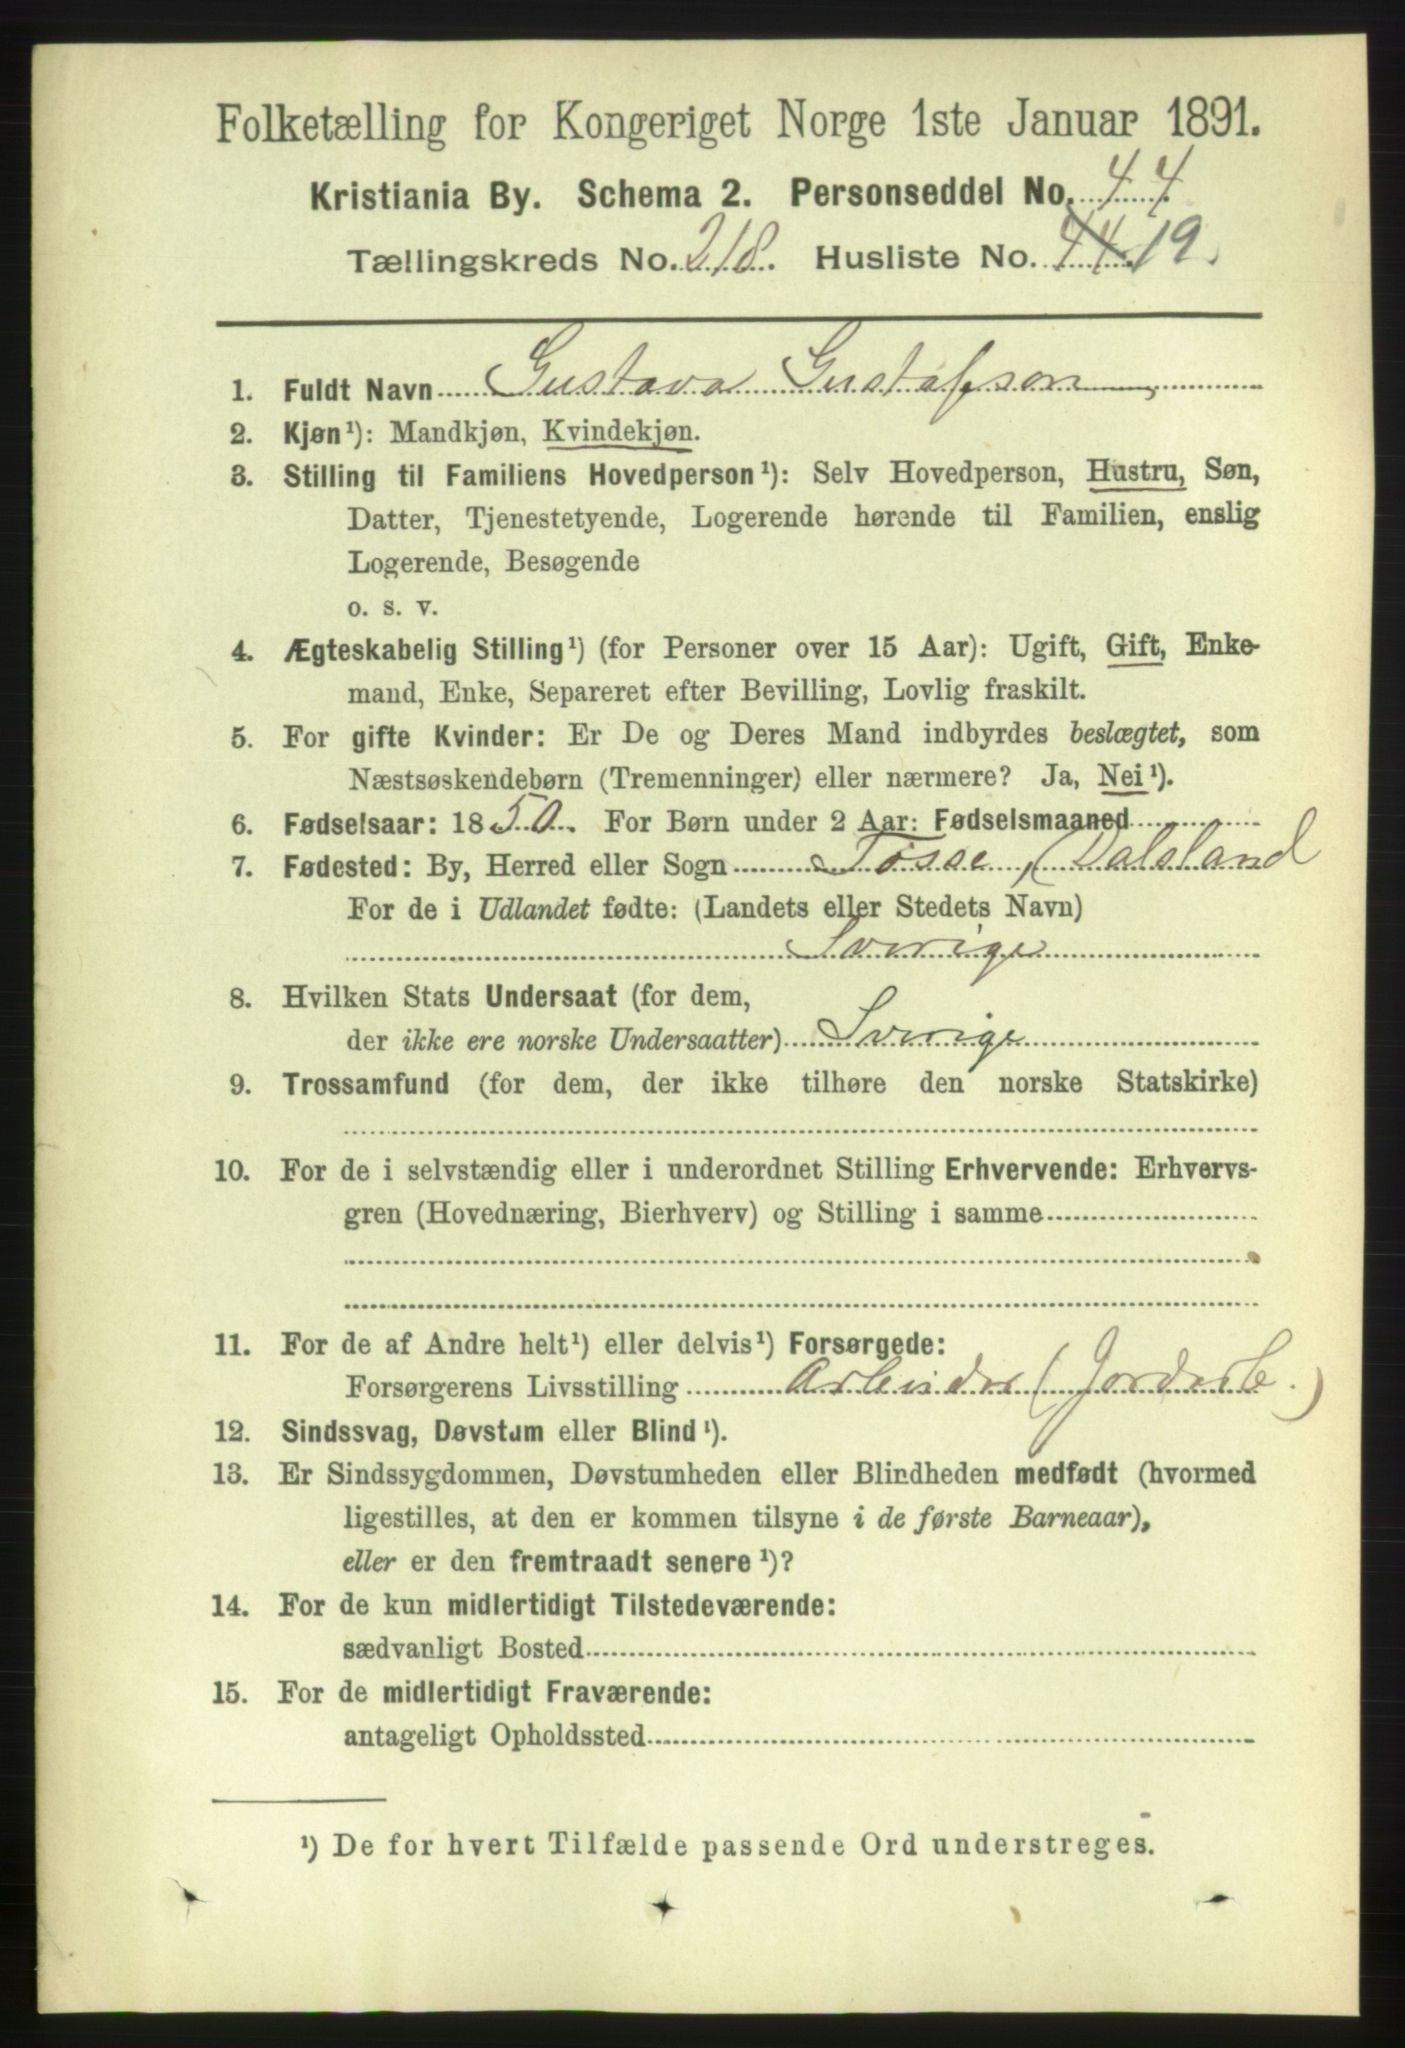 Folketælling for Kongeriget Norge 1ste Januar 1891.
Kristiania By. Schema 2. Personseddel No. 44
Tællingskreds No. 218. Husliste No. 44 19.
1. Fuldt Navn Gustava Gustafson
2. Kjøn¹): Mandkjøn, Kvindekjøn.
3. Stilling til Familiens Hovedperson¹): Selv Hovedperson, Hustru, Søn,
Datter, Tjenestetyende, Logerende hørende til Familien, enslig
Logerende, Besøgende
o. s. v.
4. Ægteskabelig Stilling¹) (for Personer over 15 Aar): Ugift, Gift, Enke-
mand, Enke, Separeret efter Bevilling, Lovlig fraskilt.
5. For gifte Kvinder: Er De og Deres Mand indbyrdes beslægtet, som
Næstsøskendebørn (Tremenninger) eller nærmere? Ja, Nei¹).
6. Fødselsaar: 1850. For Børn under 2 Aar: Fødselsmaaned
7. Fødested: By, Herred eller Sogn Tösse, (Dalsland
For de i Udlandet fødte: (Landets eller Stedets Navn)
Sverige
8. Hvilken Stats Undersaat (for dem,
der ikke ere norske Undersaatter) Sverige
9. Trossamfund (for dem, der ikke tilhøre den norske Statskirke)
10. For de i selvstændig eller i underordnet Stilling Erhvervende: Erhvervs-
gren (Hovednæring, Bierhverv) og Stilling i samme
11. For de af Andre helt¹) eller delvis¹) Forsørgede:
Forsørgerens Livsstilling Arbeider (Jordarb.)
12. Sindssvag, Døvstum eller Blind¹).
13. Er Sindssygdommen, Døvstumheden eller Blindheden medfødt (hvormed
ligestilles, at den er kommen tilsyne i de første Barneaar),
eller er den fremtraadt senere¹)?
14. For de kun midlertidigt Tilstedeværende:
sædvanligt Bosted
15. For de midlertidigt Fraværende:
antageligt Opholdssted
¹) De for hvert Tilfælde passende Ord understreges.